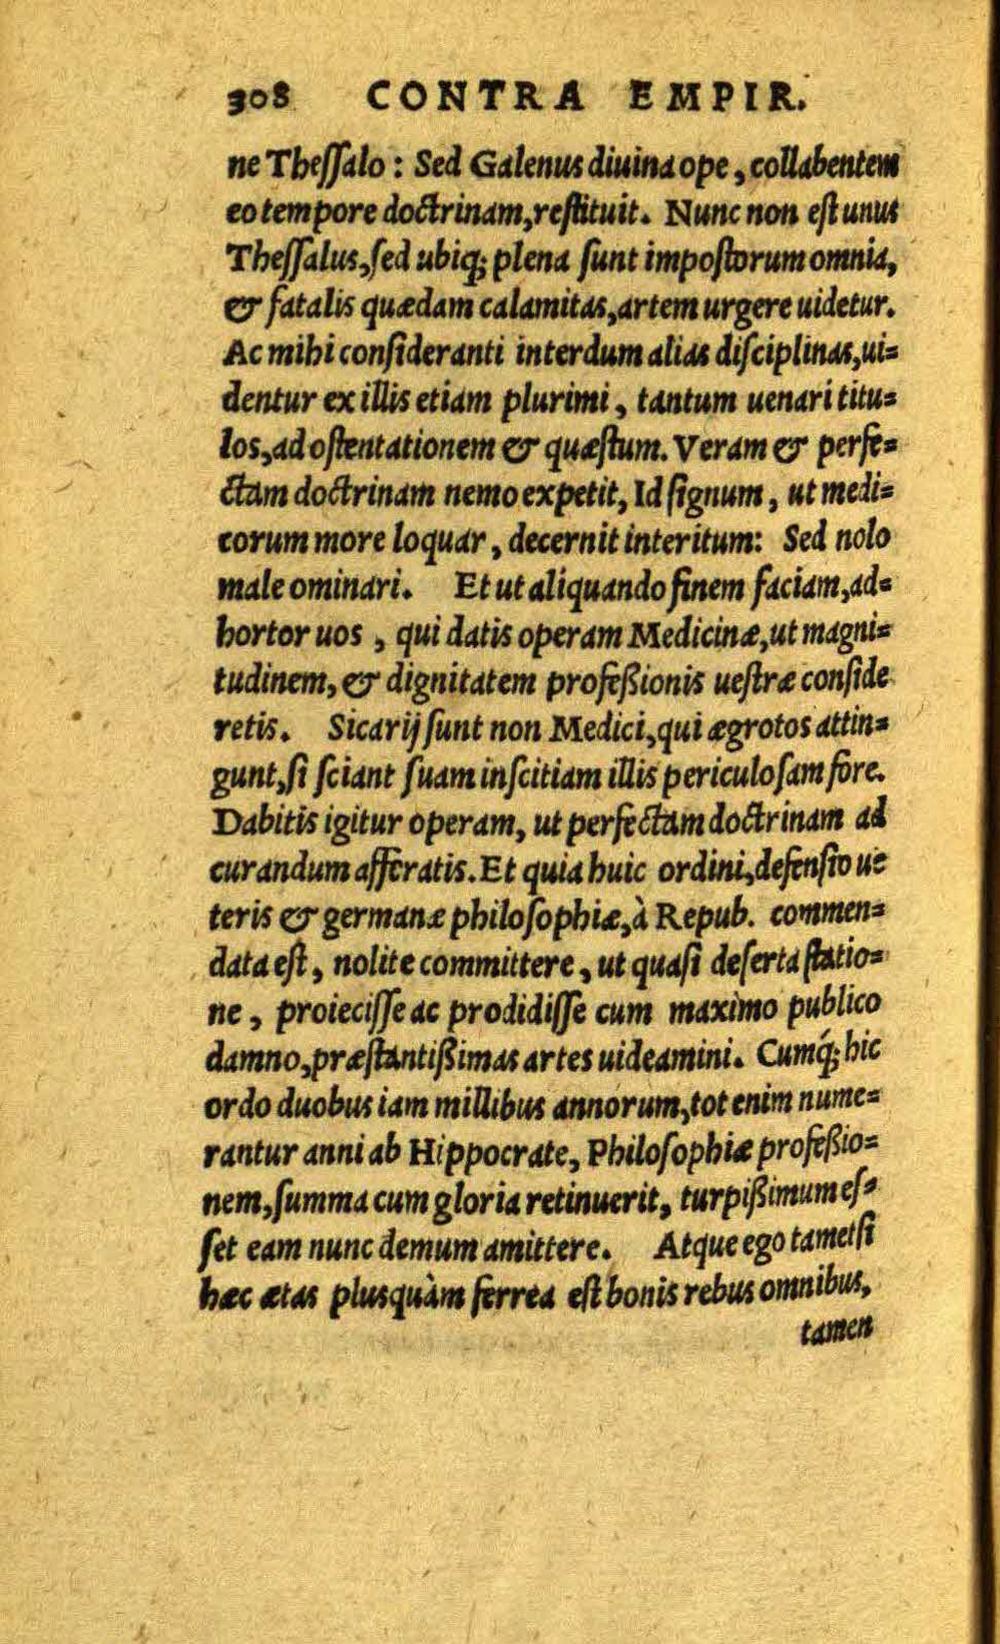 308 CONTRA EMPIR.
ne Theſſalo: Sed Galenus diuina ope, collabentem
eo tempore doctrinam, reſtituit. Nunc non eſt unus
Theſſalus, ſed ubiq; plena ſunt impoſtorum omnia,
& fatalis quædam calamitas, artem urgere uidetur.
Ac mihi conſideranti interdum alias diſciplinas, ui=
dentur ex illis etiam plurimi, tantum uenari titu=
los, ad oſtentationem & quæſtum. Veram & perfe=
ctam doctrinam nemo expetit, Id ſignum, ut medi=
corum more loquar, decernit interitum: Sed nolo
male ominari. Et ut aliquando finem faciam, ad=
hortor uos, qui datis operam Medicinæ, ut magni=
tudinem, & dignitatem profeßionis ueſtræ conſide
retis. Sicarij ſunt non Medici, qui ægrotos attin=
gunt, ſi ſciant ſuam inſcitiam illis periculoſam fore.
Dabitis igitur operam, ut perfectam doctrinam ad
curandum afferatis. Et quia huic ordini, defenſio ue
teris & germanæ philoſophiæ, à Repub. commen=
data eſt, nolite committere, ut quaſi deſerta ſtatio=
ne, proieciſſe ac prodidiſſe cum maximo publico
damno, præſtantißimas artes uideamini. Cumq́; hic
ordo duobus iam millibus annorum, tot enim nume=
rantur anni ab Hippocrate, Philoſophiæ profeßio=
nem, ſumma cum gloria retinuerit, turpißimum eſ=
ſet eam nunc demum amittere. Atque ego tametſi
hæc ætas pluſquàm ferrea eſt bonis rebus omnibus,
tamen